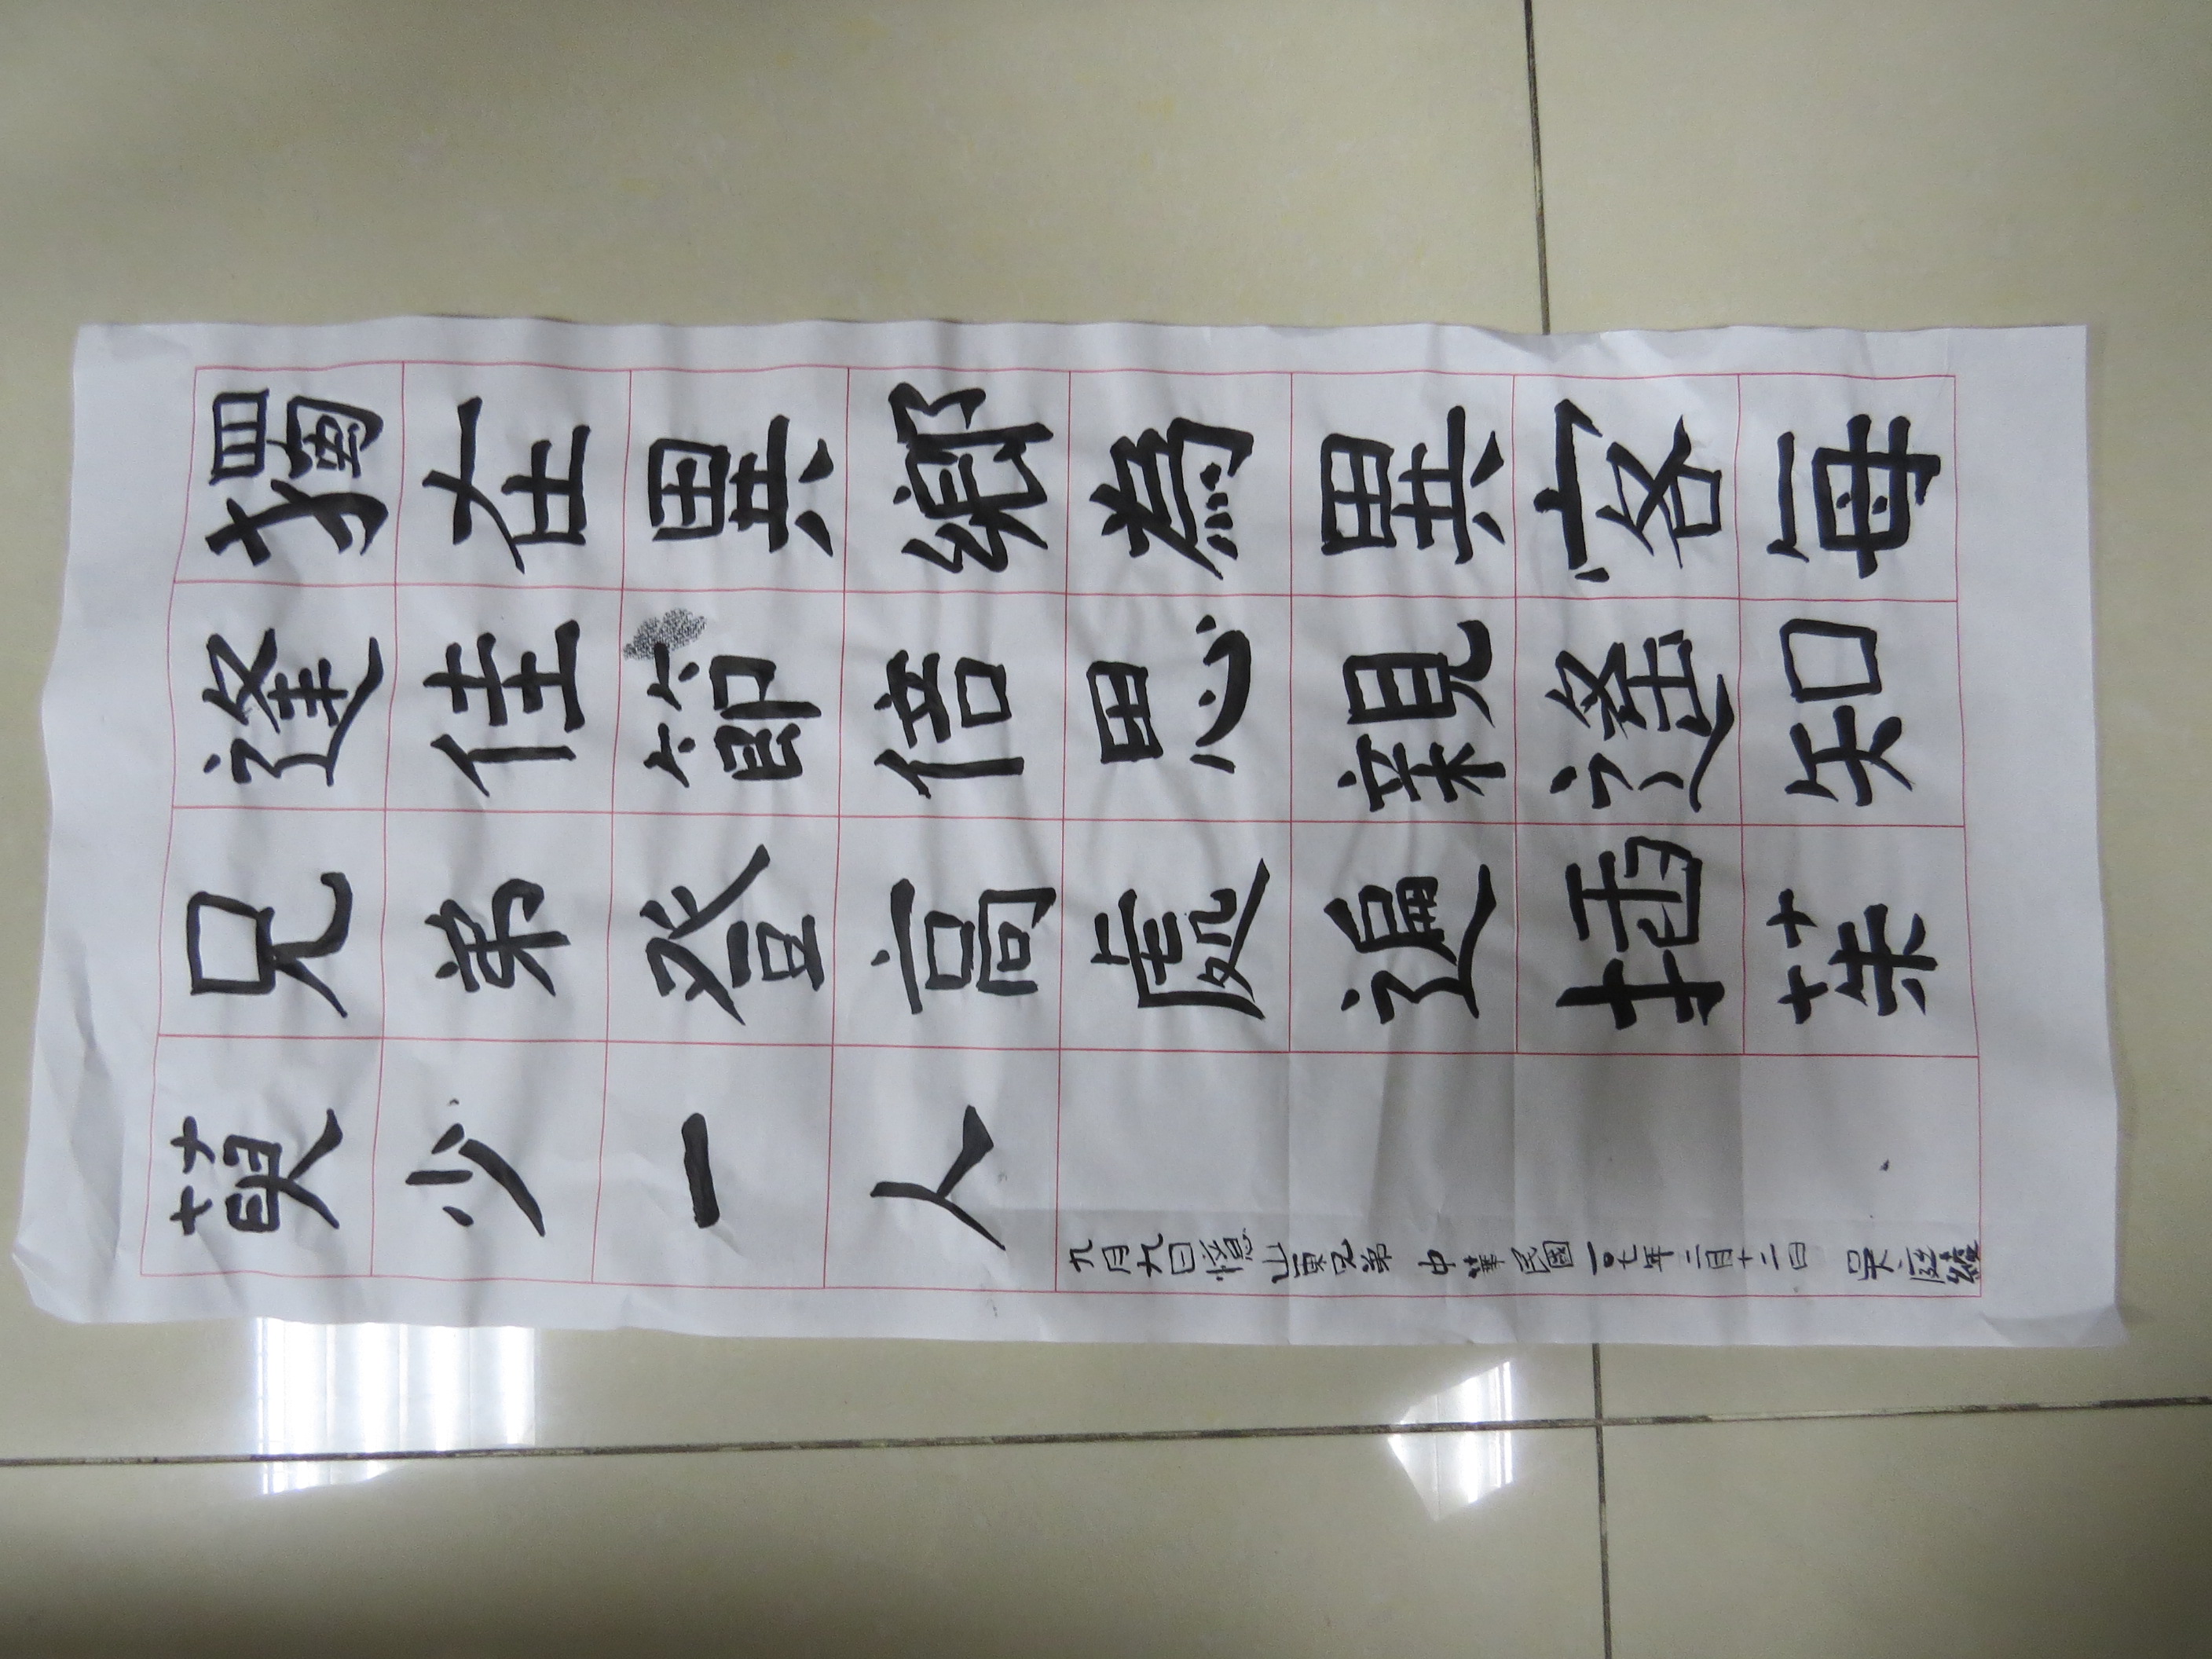 獨在異鄉為異客每
逢佳節倍思親遙知
兄弟登高處遍插茱
萸少一人
九月九日憶山東兄弟 中華民國一〇七年二月十二日 吳庭